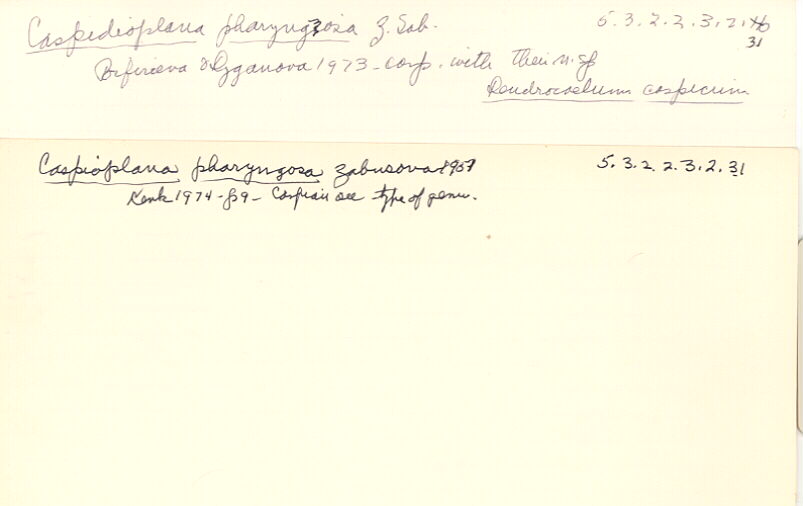 Caspedioplana pharyngosa Z. Sab. 5.3.2.2.3.2.
31
1973 - comp. with their n. sp
Dendrocoelum caspicum
Caspioplana pharyngosa Zabusova 1951 5.3.2.2.3.2.31
Kenk 1974 - p9 - Caspian sea type of genu.